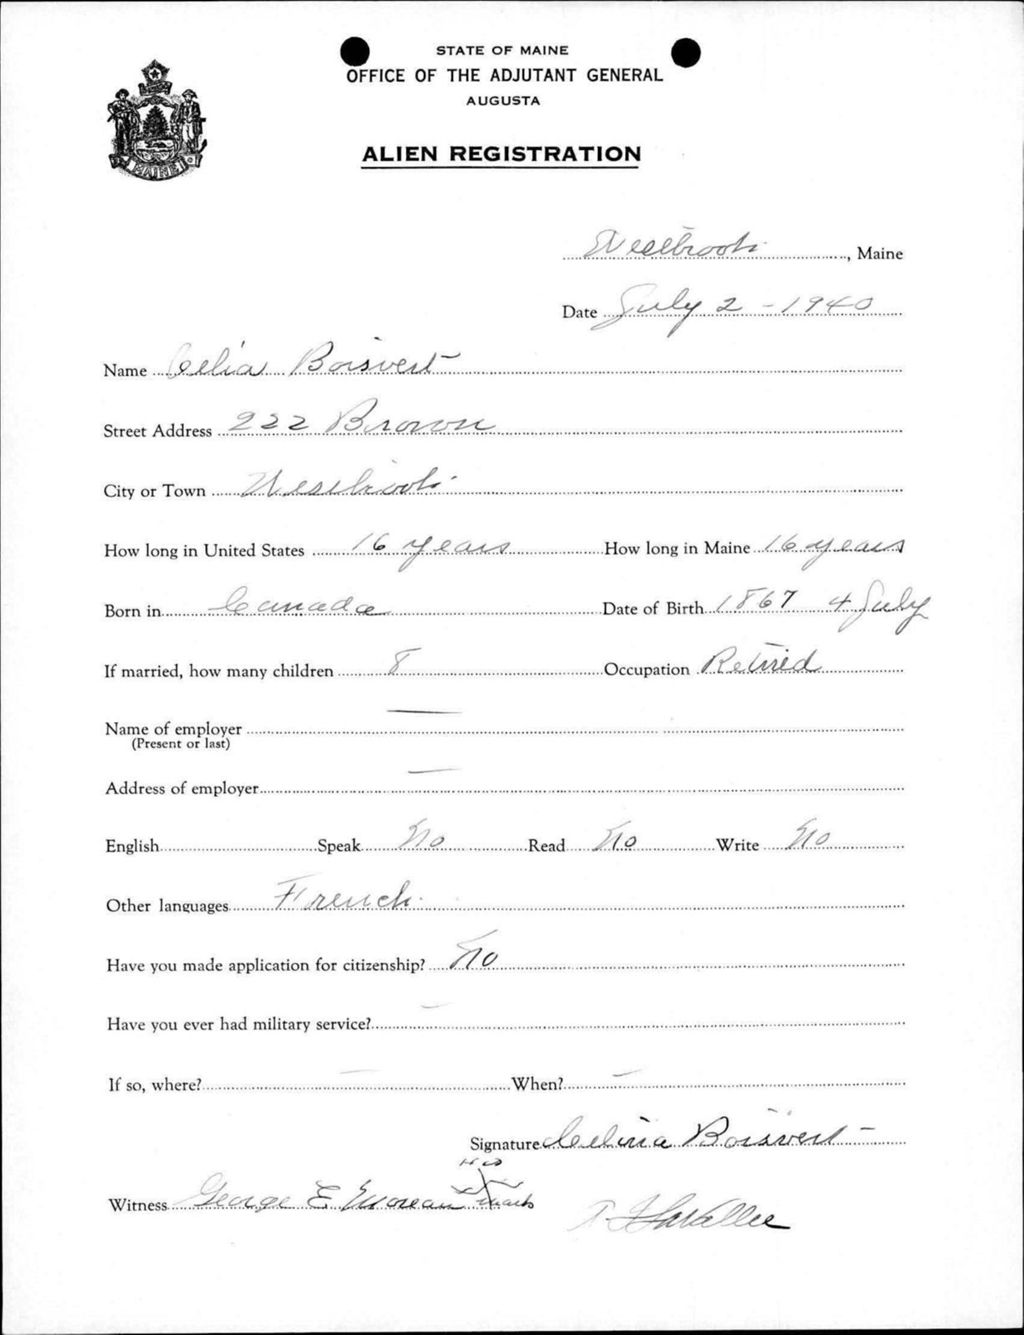 STATE OF MAINE
OFFICE OF THE ADJUTANT GENERAL
AUGUSTA
ALIEN REGISTRATION
MAINE
Westbrook, Maine
Date July 2 - 1940
Name Celia Boisvert
Street Address 222 Brown
City or Town Westbrook
How long in United States 16 years How long in Maine 16 years
Born in Canada Date of Birth 1867 4 July
If married, how many children 8 Occupation Retired
Name of employer —
(Present or last)
Address of employer —
English Speak No Read No Write No
Other languages French
Have you made application for citizenship? No
Have you ever had military service? —
If so, where? — When? —
Signature Celina Boisvert
His
X
Witness George E. Moreau mark
LaVallee